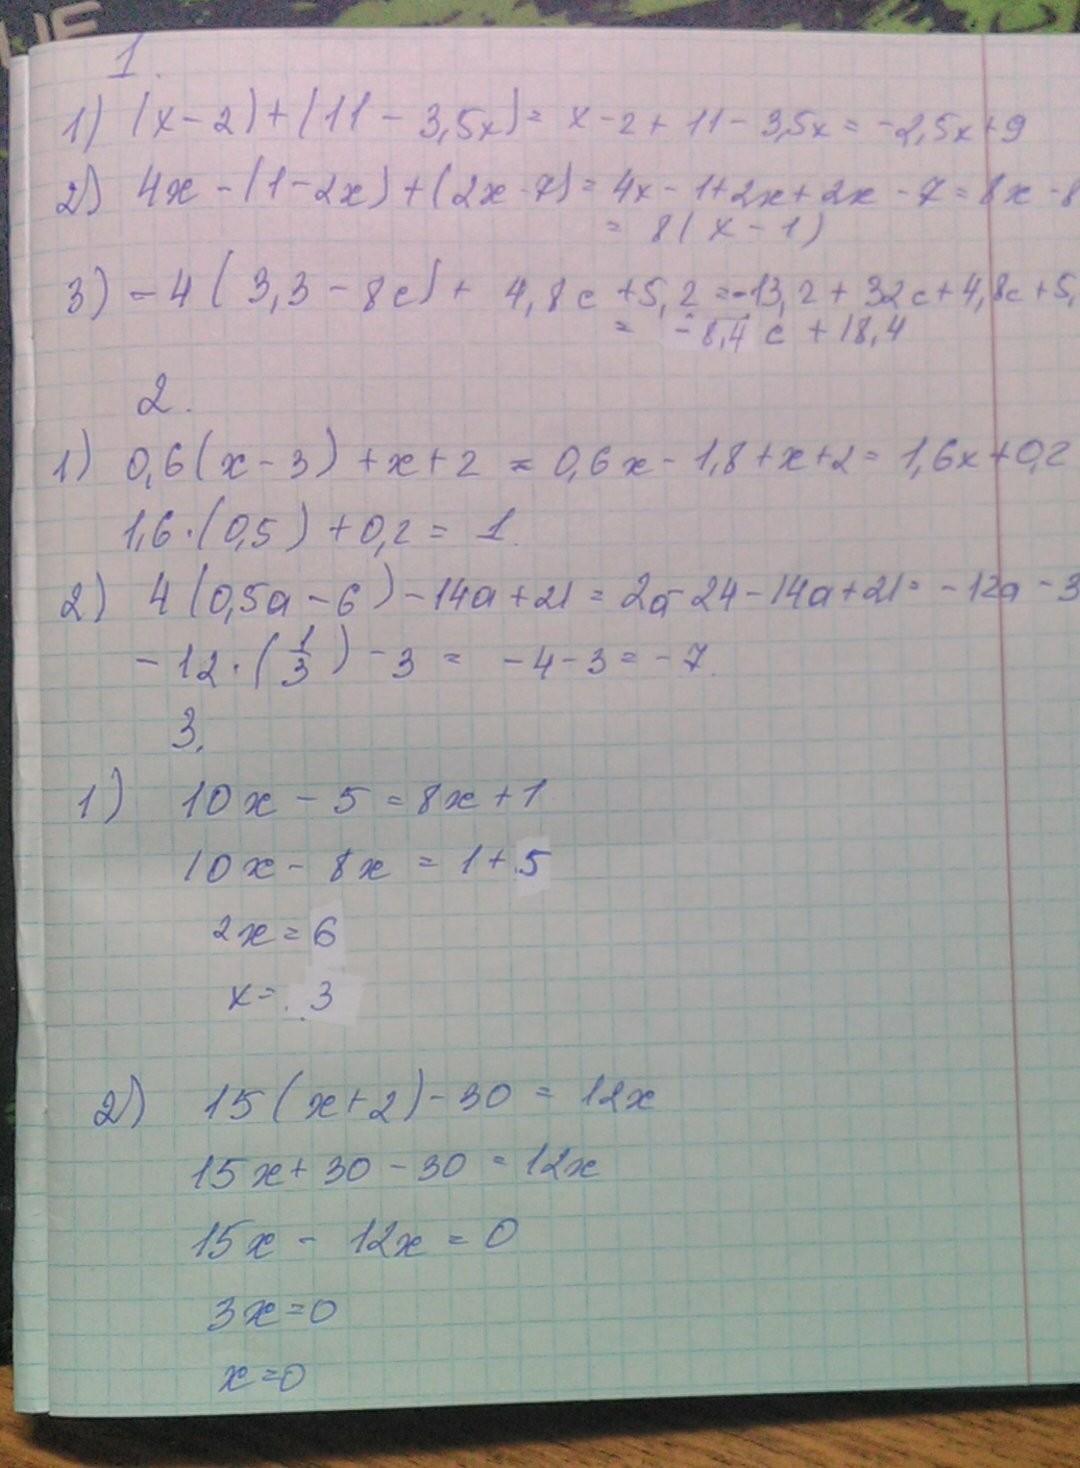 1.
1) (x-2)+(11-3,5x)= x-2+11-3,5x=-2,5x+9
2) 4x-(1-2x)+(2x-7)=4x-1+2x+2x-7=8x-8
= 8(x-1)
3) -4(3,3-8c)+4,8c+5,2=-13,2+32c+4,8c+5,
= -8,4c+18,4
2.
1) 0,6(x-3)+x+2=0,6x-1,8+x+2=1,6x+0,2
1,6·(0,5)+0,2= 1.
2) 4(0,5a-6)-14a+21=2a-24-14a+21=-12a-3
-12·(1/3)-3= -4-3=-7.
3.
1) 10x-5=8x+1
10x-8x=1+5
2x=6
x=3
2) 15(x+2)-30=12x
15x+30-30=12x
15x-12x=0
3x=0
x=0